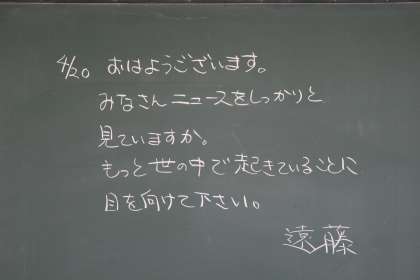 4/20 おはようございます。
みなさんニュースをしっかりと
見ていますか。
もっと世の中で起きていることに
目を向けて下さい。
遠藤